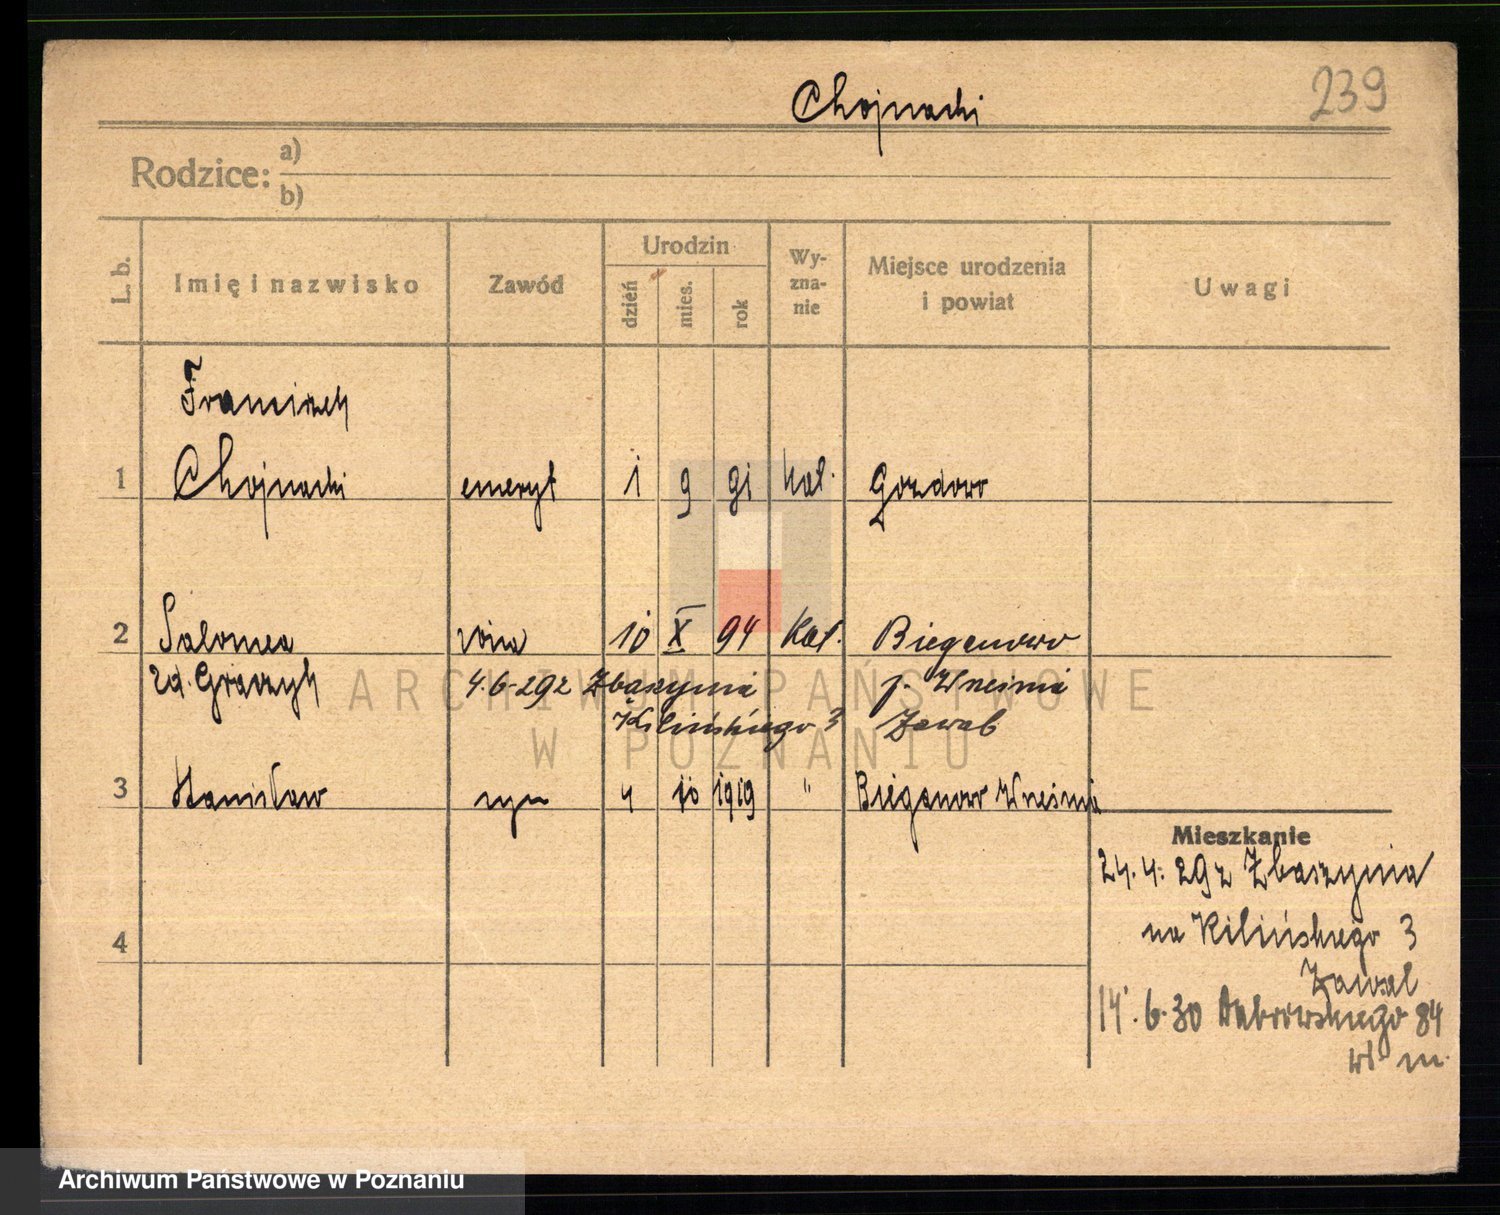 Chojnacki
239
Rodzice: a)
b)
L. b.
Imię i nazwisko
Zawód
Urodzin
dzień
mies.
rok
Wy-
zna-
nie
Miejsce urodzenia
i powiat
Uwagi
Franciszek
1 Chojnacki emeryt 1 9 91 kat. Gozdowo
2 Salomea żona 10 X 94 Kat. Bieganowo
zd. Graczyk 4.6-29 z Zbąszynia p. Września
Kilińskiego 3
3 Stanisław syn 4 10 1919 " Bieganowo Września
Mieszkanie
24.4.29 z Zbąszynia
na Kilińskiego 3
4
14.6.30 Dąbrowskiego 84
m.
ARCHIWUM PAŃSTWOWE
W POZNANIU
Archiwum Państwowe w Poznaniu